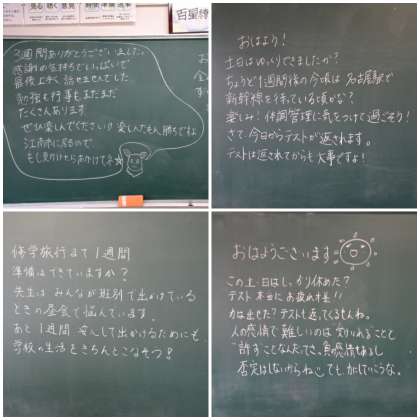 百星繚
3週間ありがとうございました。
感謝の気持ちでいっぱいで
最後上手く話せませんでした。
勉強も行事もまだまだ
たくさんあります
ぜひ楽しんでください!! 楽しんだもん勝ちですよ
江南市に居るので
もし見かけたら声かけてネ☆
おはよう!
土日はゆっくりできましたか?
ちょうど1週間後の今頃は 名古屋駅で
新幹線を待っている頃かな?
楽しみ! 体調管理に気をつけて過ごそう!
さて、今日からテストが返されます。
テストは返されてからも大事ですよ!
修学旅行まで1週間
準備はできていますか?
先生は みんなが班別で出かけている
ときの昼食で悩んでいます。
あと1週間 安心して出かけるためにも
学校の生活をきちんとこなそう!
おはようございます
この土・日はしっかり休めた?
テスト本当にお疲れ様!!
力は出せた? テストも返ってくるもんね。
人の感情で難しいのは 受け入れることと
許すことなんだってさ。負の感情もあるし
否定はしないからね